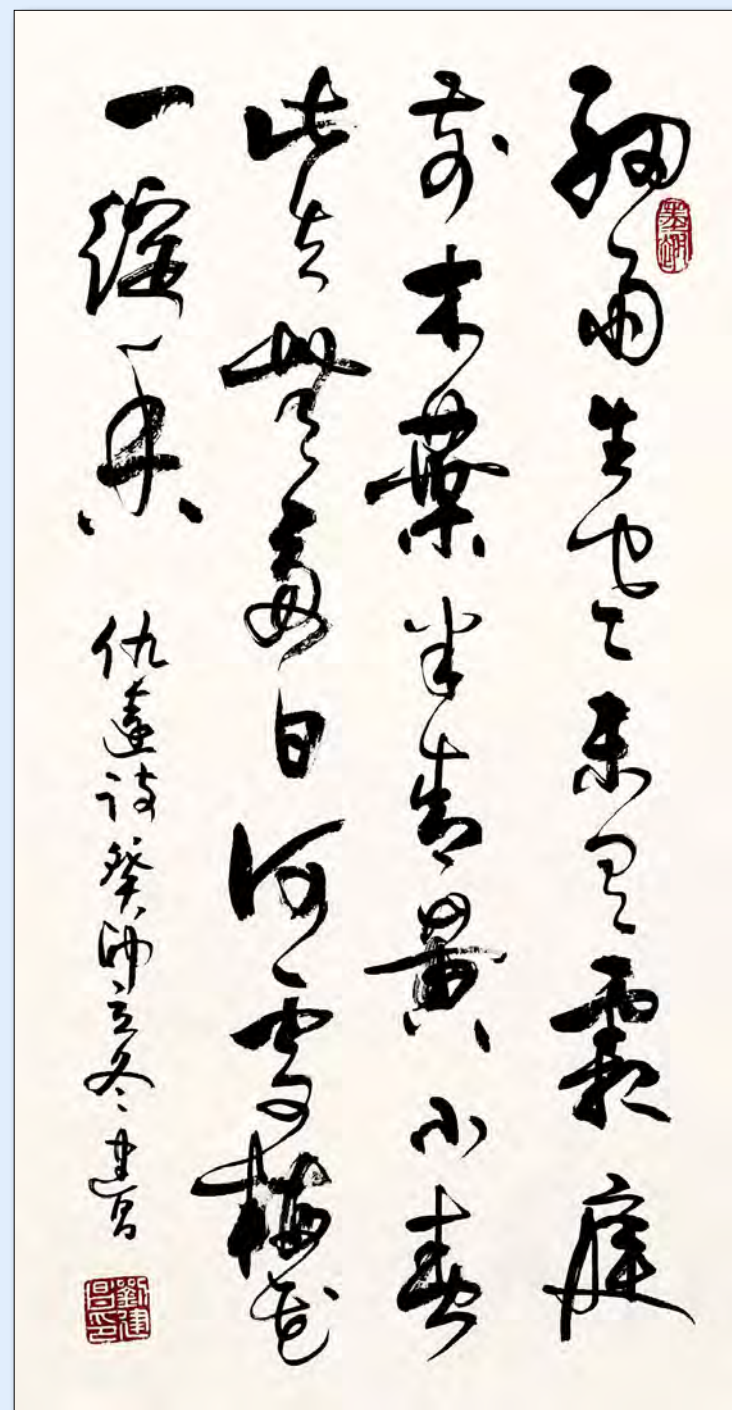 細雨生寒未有霜庭
前木葉半青黃小春
此去無多日何處梅花
一綻香 仇遠詩癸卯立冬建昌
劉建昌印